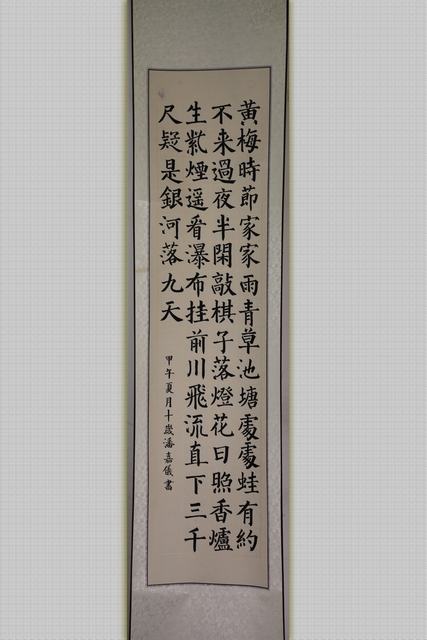 黃梅時節家家雨青草池塘處處蛙有約
不来過夜半閑敲棋子落燈花日照香爐
生紫煙遥看瀑布挂前川飛流直下三千
尺疑是銀河落九天
甲午夏月十歲潘嘉儀書